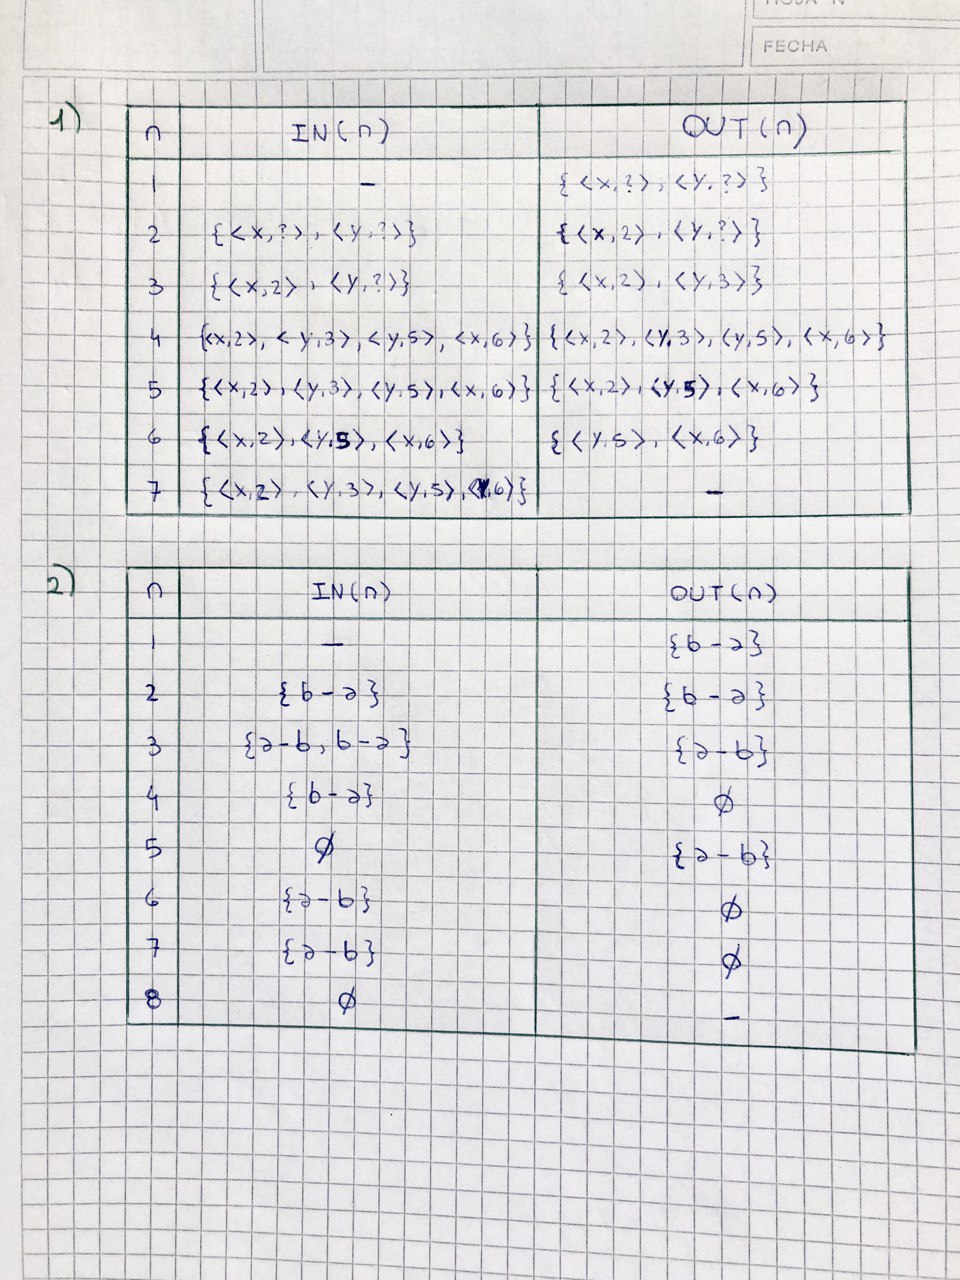 HOJA N°
FECHA
1)
n IN(n) OUT(n)
1 – {<x,?>, <y,?>}
2 {<x,?>, <y,?>} {<x,2>, <y,?>}
3 {<x,2>, <y,?>} {<x,2>, <y,3>}
4 {<x,2>, <y,3>, <y,5>, <x,6>} {<x,2>, <y,3>, <y,5>, <x,6>}
5 {<x,2>, <y,3>, <y,5>, <x,6>} {<x,2>, <y,5>, <x,6>}
6 {<x,2>, <y,5>, <x,6>} {<y,5>, <x,6>}
7 {<x,2>, <y,3>, <y,5>, < ,6>} –
2)
n IN(n) OUT(n)
1 – {b-a}
2 {b-a} {b-a}
3 {a-b, b-a} {a-b}
4 {b-a} ∅
5 ∅ {a-b}
6 {a-b} ∅
7 {a-b} ∅
8 ∅ –